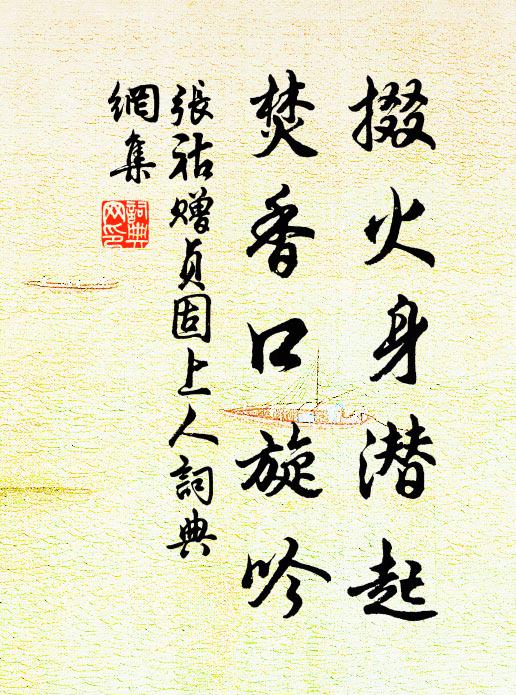 掇火身潜起
焚香口旋吟
張祜贈貞固上人詞典
網集
詞典
网印